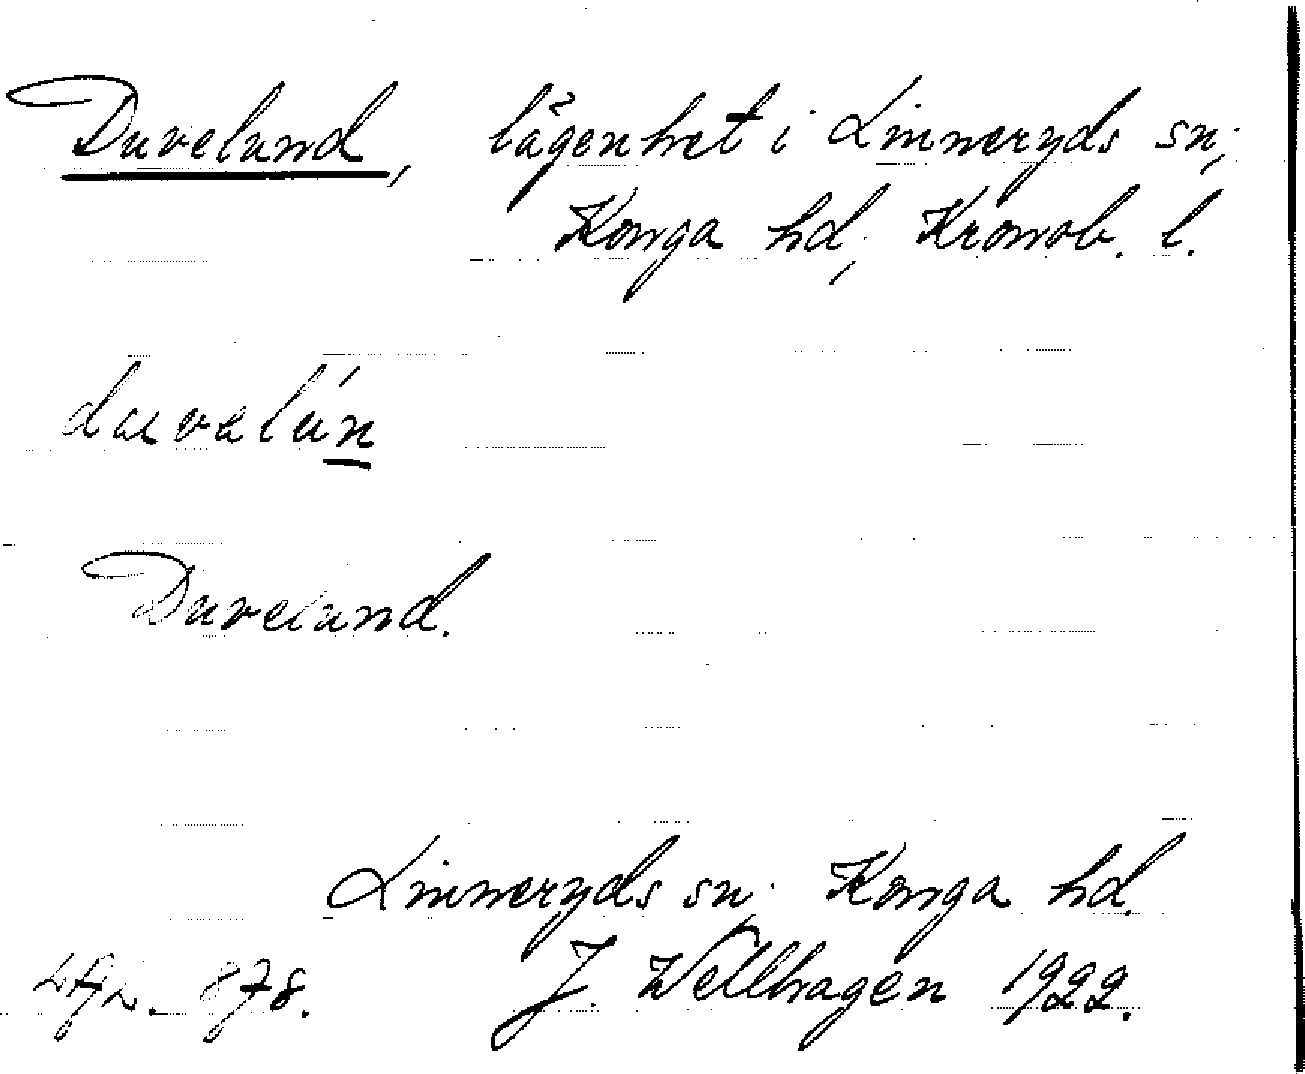 Duveland, lägenhet i Linneryds sn;
Konga hd, Kronob. l.
duvalán
Duveland.
Linneryds sn; Konga hd.
878. J. Wellhagen 1922.